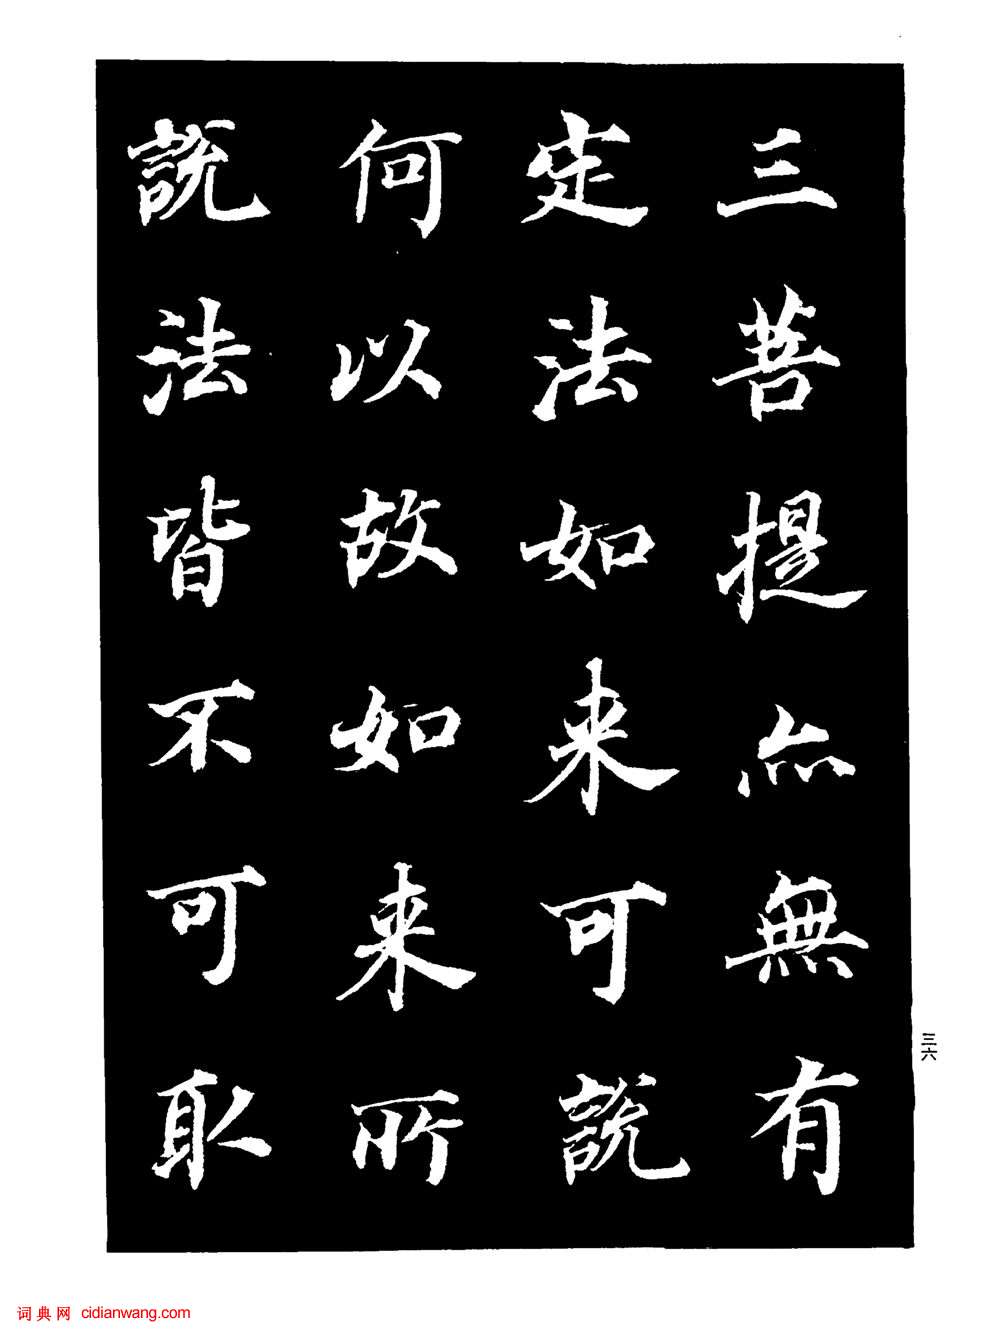 三菩提亦無有
定法如来可說
何以故如来所
說法皆不可取
三六
词典网 cidianwang.com